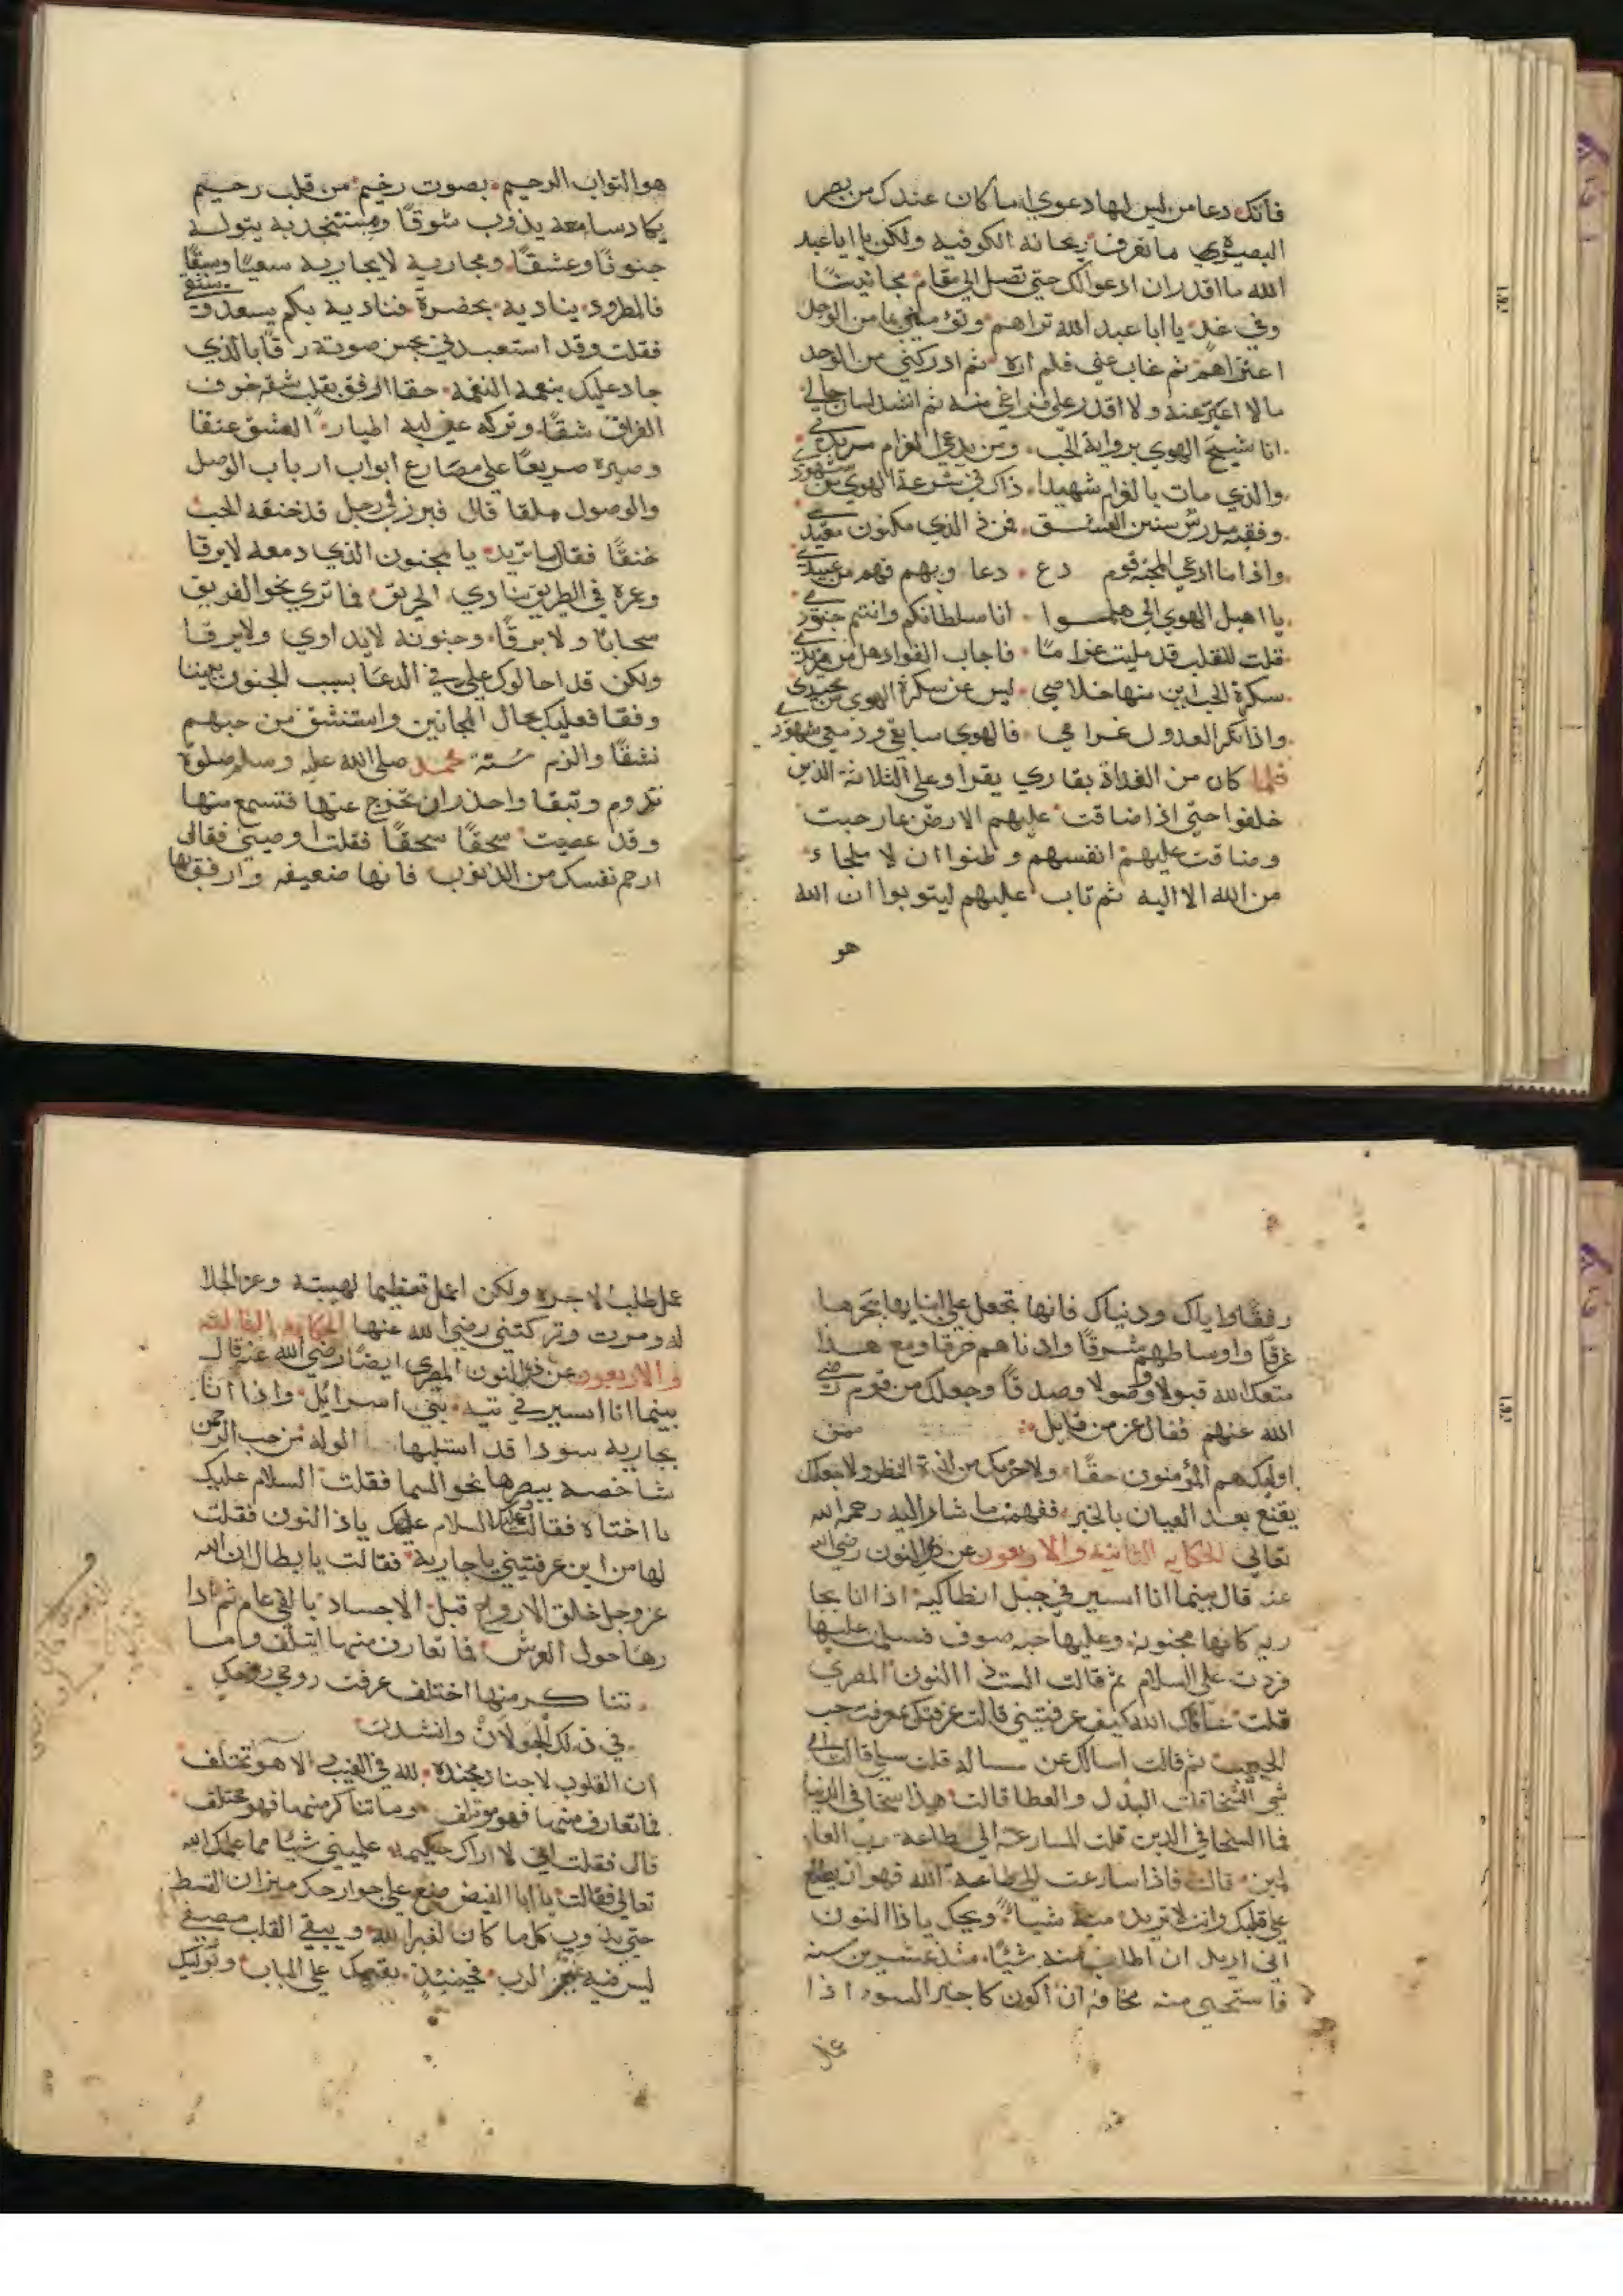 فانك دعا من ليس لها دعوي اما كان عندك من بصر
البصيرة ما تعرف ريحانة الكوفيه ولكن يا ابا عبد
الله ما اقدر ان ادعوا لك حتي تصل الي مقام مجانيننا
وفي غد يا ابا عبد الله تراهم وتؤمنني ما من الوجل
اعتراهم ثم غاب عني فلم اره ثم ادركني من الوجد
مالا اعبر عنه ولا اقدر علي فراغي منه ثم انشد لسان حالي
انا شيخ الهوي برواية الحب ومن يدعي الغرام مريدي
والذي مات بالغرام شهيدا ذاك في شرعة الهوي من شهودي
وفقيه مدرس سنين العشق فمن ذ الذي مكنون مقيد
واذا ما ادعي المحبة قوم دع دعاويهم فهم من عبيدي
يا اهيل الهوي الي هلموا انا سلطانكم وانتم جنودي
قلت للقلب قد مليت غراما فاجاب الفواد هل من مزيد
سكرة الحب اين منها خلاصي ليس عن سكرة الهوي من محيدي
واذا نكر العدول غرامي فالهوي سايقي ودمعي شهودي
فلما كان من الغداة بقاري يقرا وعلي الثلاثة الذين
خلفوا حتي اذا ضاقت عليهم الارض بما رحبت
وضاقت عليهم انفسهم وظنوا ان لا ملجاء
من الله الا اليه ثم تاب عليهم ليتوبوا ان الله
هو
هو التواب الرحيم بصوت رخيم من قلب رحيم
يكاد سامعه يذوب شوقا ومستنجد به يتوله
جنونا وعشقا ومجاريه لا يجاريه سعيا وسبقا
فالمطرود يناديه بحضرة فناديه بكم يسعد و
فقلت وقد استعبدني بحسن صوته رقا بالذي
جاد عليك بنعمة النغمة حقا الا رفق بقلب شقه خوف
الفراق شقا وتركه في لبه اطيار العشق عنقا
وصيره صريعا علي مصارع ابواب ارباب الوصل
والوصول ملقا قال فبرز لي رجل قد خنقه الحب
خنقا فقال ما تريد يا مجنون الذي دمعه لا يرقا
وغره في الطريق ينادي الحريق فما تري نحو الفريق
سحابا ولا برقا وجنونه لا يداوي ولا يرقا
ولكن قد احالوك علي في الدعا بسبب الجنون بيننا
وفقا فعليك بحال المجانين واستنشق من حبهم
نشقا والزم سنة محمد صلي الله عليه وسلم صلوة
تدوم وتبقا واحذر ان تخرج عنها فتسمع منها
وقد عصيت سحقا سحقا فقلت اوصيني فقال
ارحم نفسك من الذنوب فانها ضعيفه وارفق بها
رفقا واياك ودنياك فانها تجعل علي ابنايها بحرها
غرقا واوساطهم شرقا وادناهم خرقا ومع هذا
متعك الله قبولا وصولا وصدقا وجعلك من قوم رضي
الله عنهم فقال عز من قايل ممن
اوليك هم المؤمنون حقا ولا حرمك من لذة النظر ولا جعلك
يقنع بعد العيان بالخبر ففهمت ما شار اليه رحمه الله
تعالي الحكايه الثانيه والاربعون عن ذي النون رضي الله
عنه قال بينما انا اسير في جبل انطاكية اذا انا بجا
ريه كانها مجنونه وعليها جبه صوف فسلمت عليها
فردت علي السلام ثم قالت الست ذا النون المصري
قلت عافاك الله كيف عرفتيني قالت عرفتك بمعرفت حب
الحبيب ثم قالت اسالك عن مساله قلت سلي قالت اي
شي السخا قلت البذل والعطا قالت هذا سخا في الدنيا
فما السخا في الدين قلت المسارعة الي طاعة رب العا
لمين قالت فاذا سارعت الي طاعة الله فهو ان يطلع
علي قلبك وانت لا تريد منه شيا ويحك يا ذا النون
اني اريد ان اطلب منه شيئا منذ عشرين سنه
فاستحيي منه مخافة ان اكون كاجير السوء اذا
عمل
عمل طلب لاجره ولكن اعمل تعظيما لهيبته وعز الجلا
له ومرت وتركتني رضي الله عنها الحكايه الثالثه
والاربعون عن ذي النون المصري ايضا رضي الله عنه قال
بينما انا اسير في تيه بني اسرائل واذا انا
بجاريه سودا قد استلبها الوله من حب الرحمن
شاخصه ببصرها نحو السما فقلت السلام عليك
يا اختاه فقالت وعليك السلام يا ذا النون فقلت
لها من اين عرفتيني يا جارية فقالت يا بطال ان الله
عز وجل خلق الارواح قبل الاجساد بالفي عام ثم ادا
رها حول العرش فما تعارف منها ايتلف وما
تناكر منها اختلف عرفت روحي روحك
في ذلك الجولان وانشدت
ان القلوب لاجناد مجنده لله في الغيب الاهوا تختلف
فما تعارف منها فهو موتلف وما تناكر منها فهو مختلف
قال فقلت اني لا اراك حكيمه علميني شيئا مما علمك الله
تعالي فقالت يا ابا الفيض ضع علي جوارحك ميزان القسط
حتي يذوب كل ما كان لغير الله ويبقي القلب مصفي
ليس فيه غير الرب فحينئذ يقيمك علي الباب وتوليك